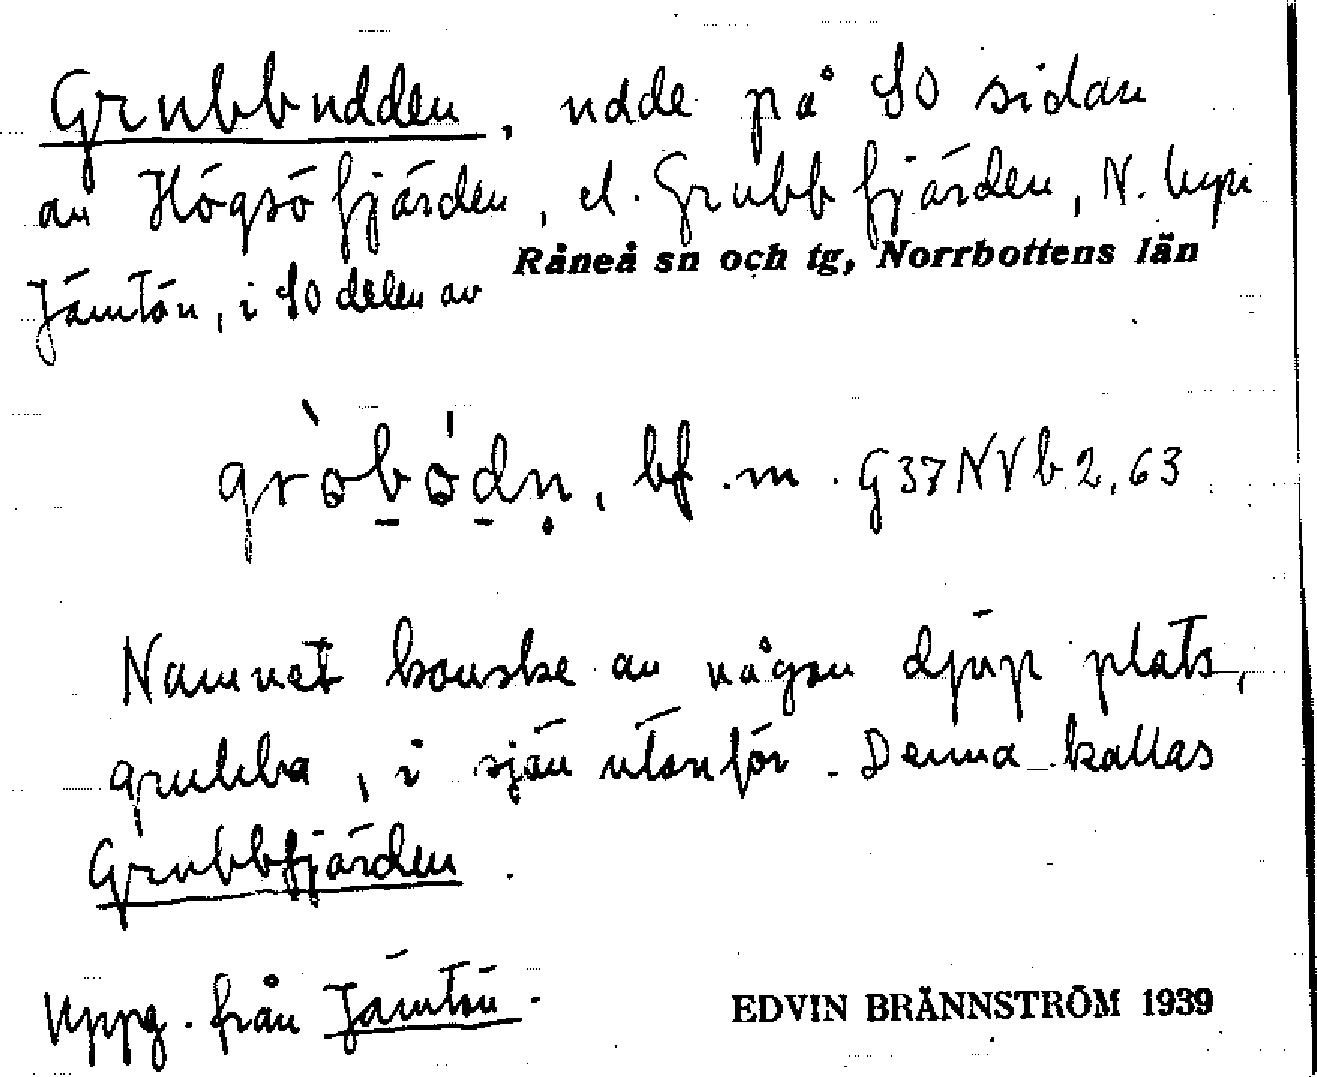 Grubbudden, udde på SO sidan
av Högsöfjärden, el. Grubbfjärden, N. byn
Jämtön, i SO delen av Råneå sn och tg, Norrbottens län
gròbódn, bf. m. G37NVb2,63
Namnet kanske av någon djup plats,
grubba, i sjön utanför. Denna kallas
Grubbfjärden.
Uppg. från Jämtön. EDVIN BRÄNNSTRÖM 1939